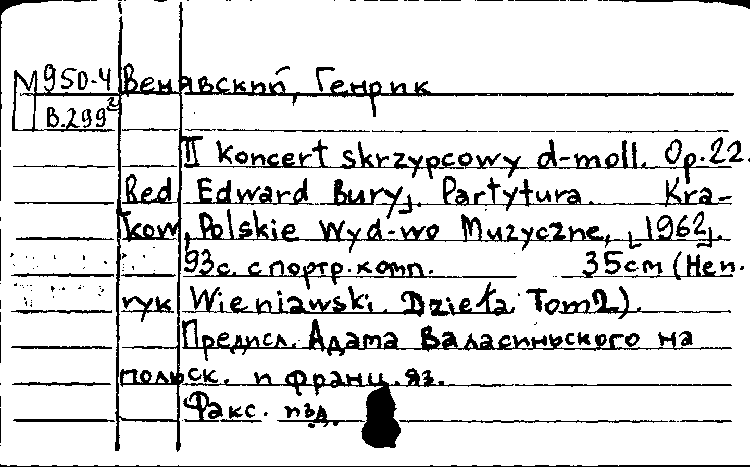 М950-4 Венявский, Генрик
В.299²
II Koncert skrzypcowy d-moll. Op.22.
Red. Edward Bury. Partytura. Kra-
kow, Polskie Wyd-wo Muzyczne, [1962].
93с. с портр. комп. 35см (Hen-
ryk Wieniawski. Dzieła. Tom 2).
Предисл. Адама Валасиньского на
польск. и франц. яз.
Факс. изд.